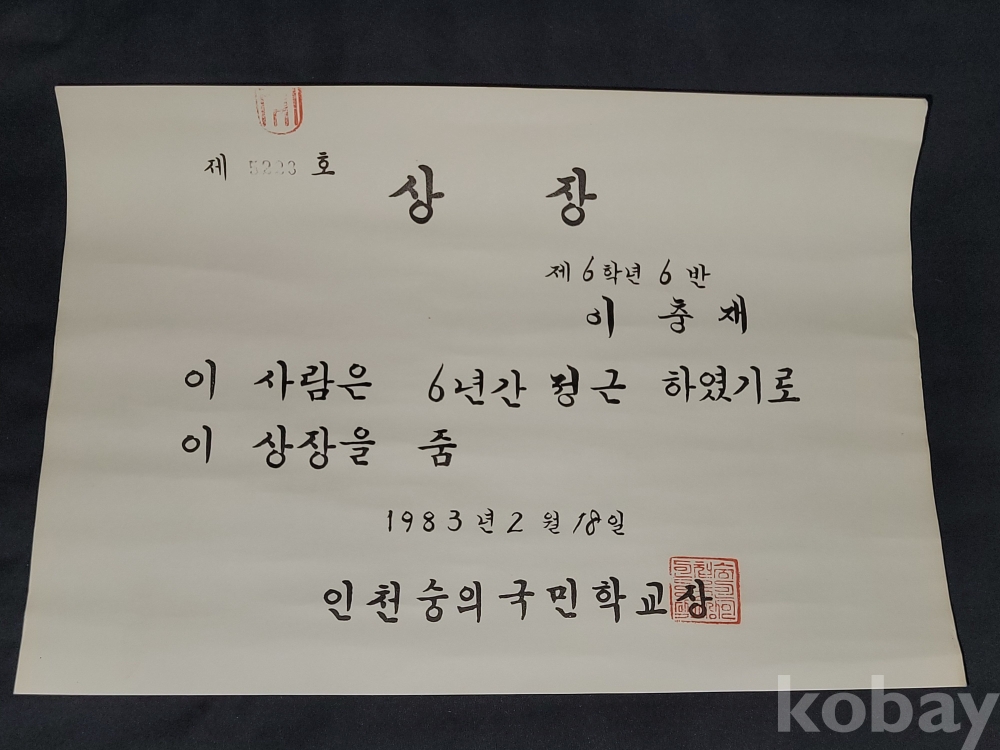 제 5223 호
상 장
제 6 학년 6 반
이 충 재
이 사람은 6년간 정근 하였기로
이 상장을 줌
1983년 2월 18일
인천숭의국민학교장
kobay